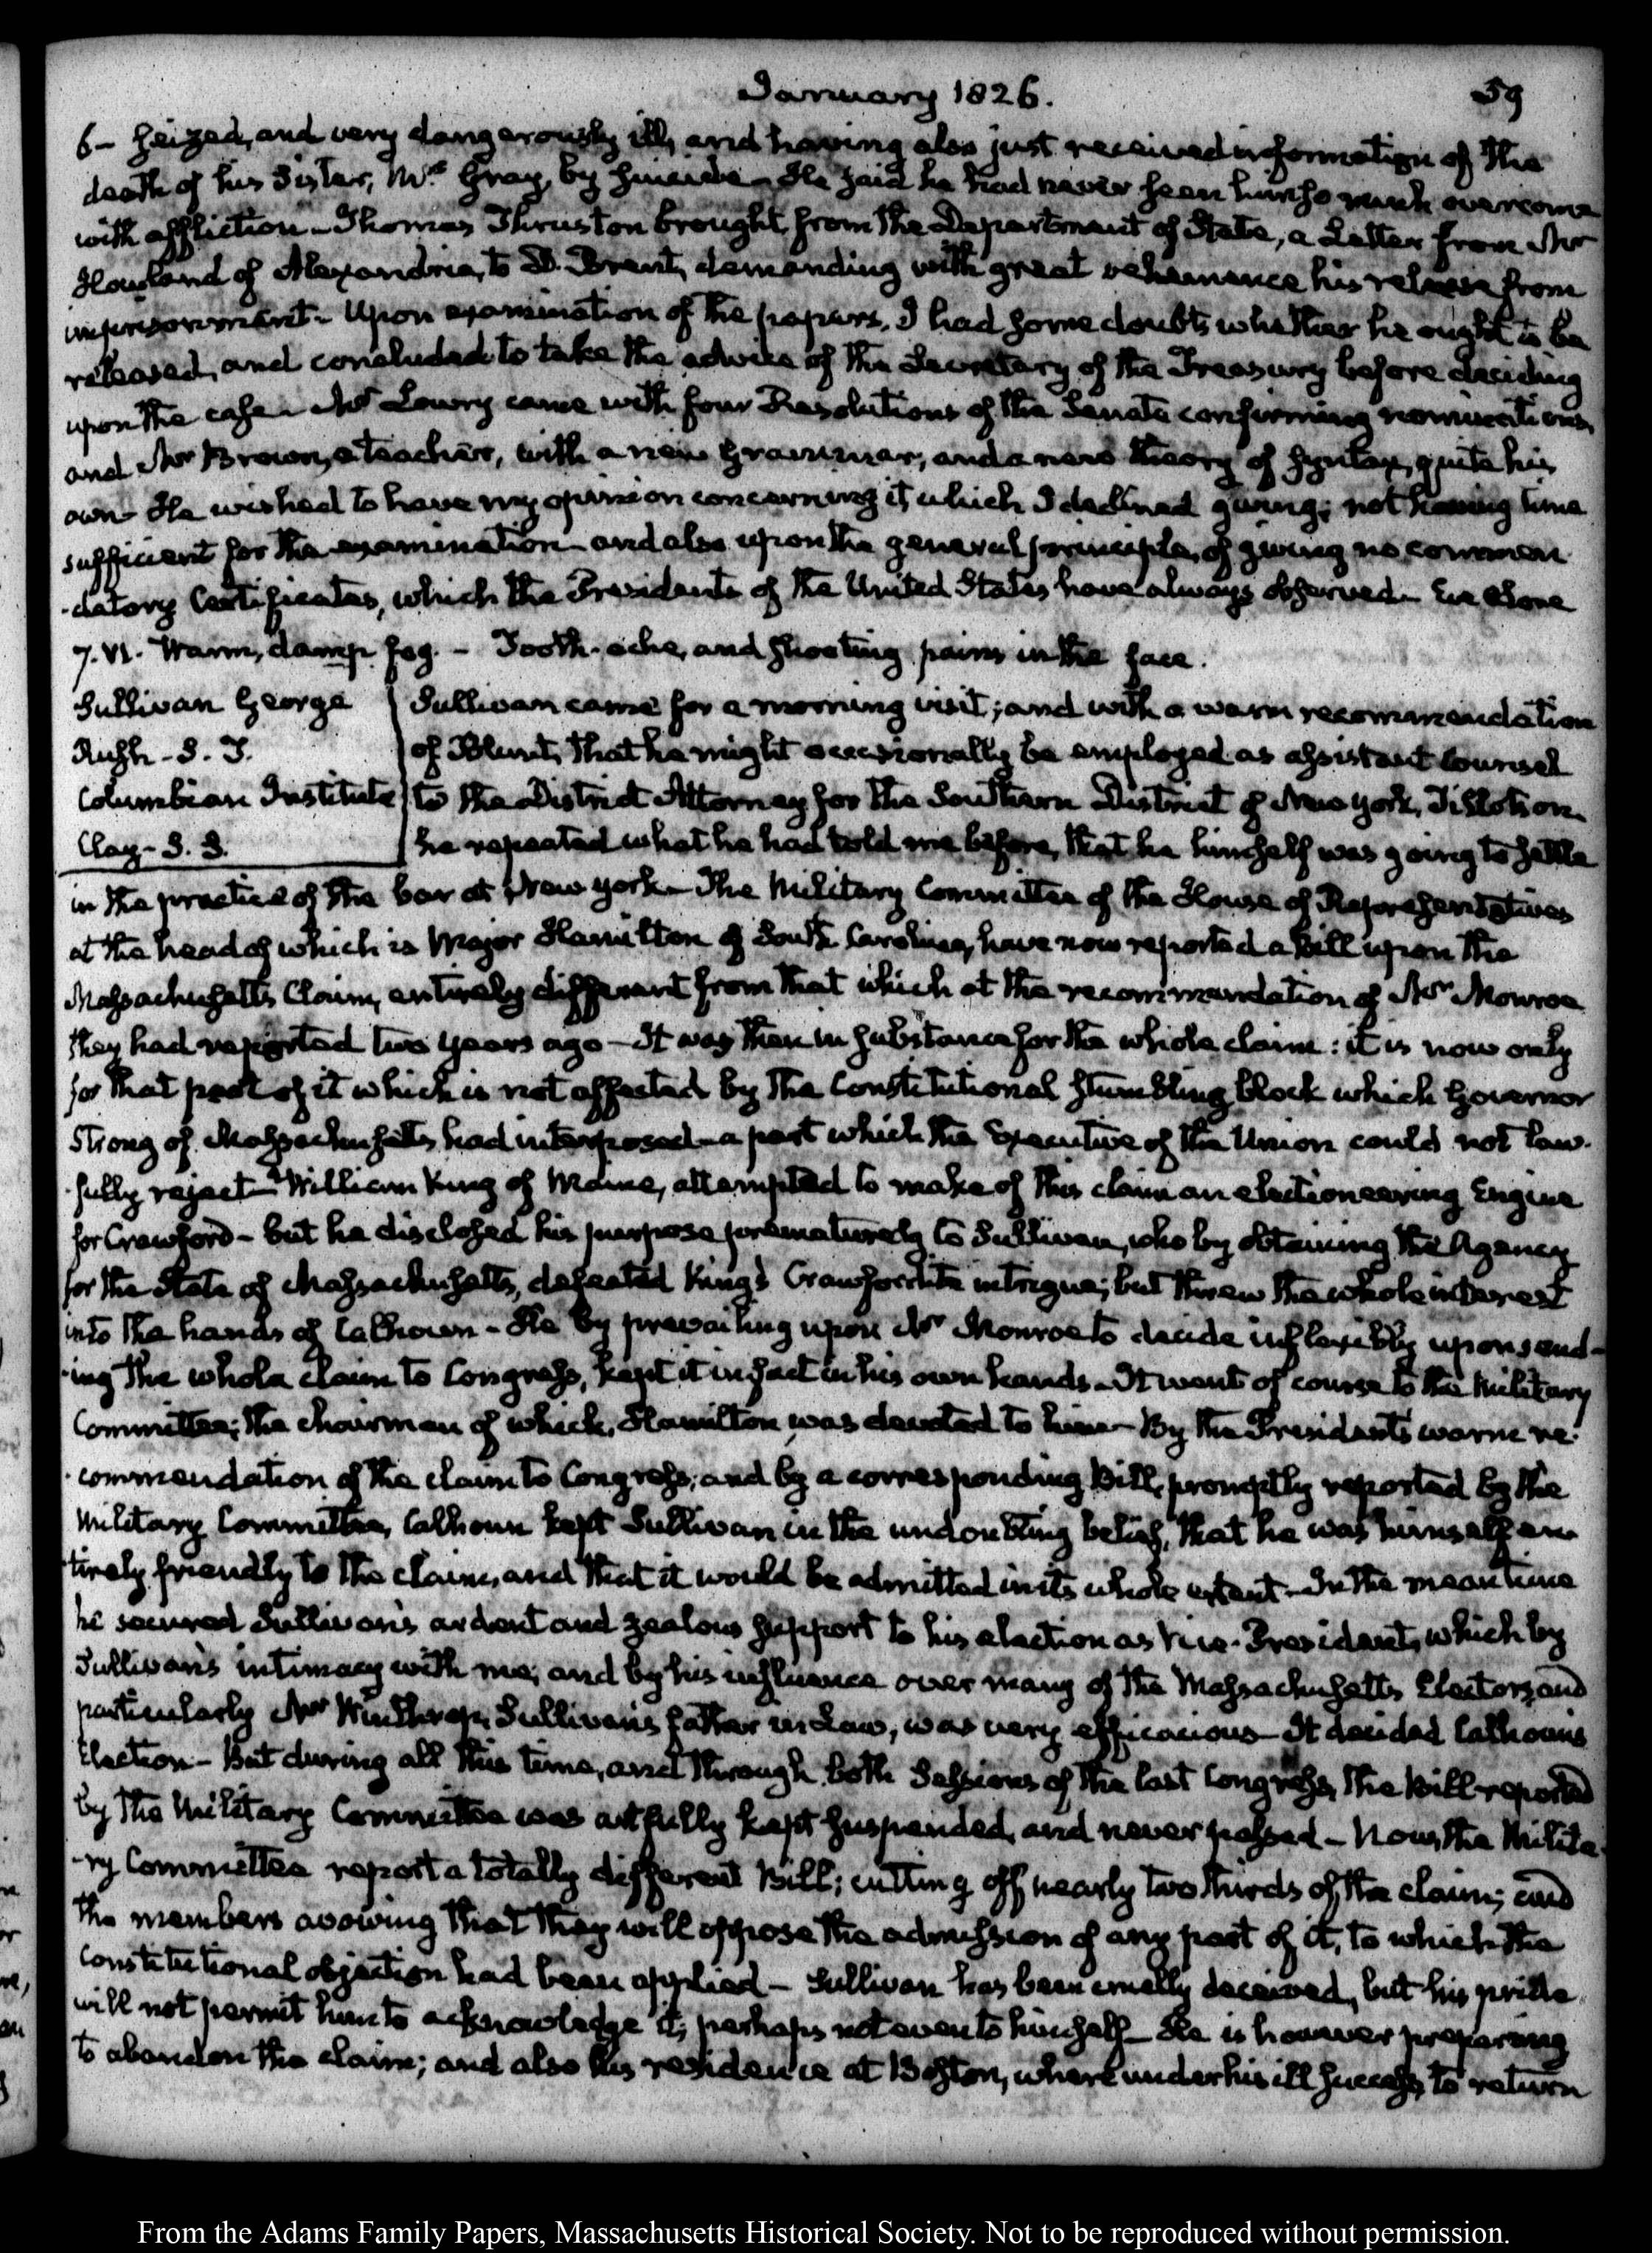 January 1826.
59
6— seized, and very dangerously ill, and having also just received information of the
death of his Sister, Mrs. Gray, by suicide— He said he had never seen him so much overcome
with affliction— Thomas Thruston brought from the Department of State, a Letter from Mr
Howland of Alexandria, to D. Brent, demanding with great vehemence his release from
imprisonment— Upon examination of the papers, I had some doubts whether he ought to be
released, and concluded to take the advice of the Secretary of the Treasury before deciding
upon the case— Mr Lowry came with four Resolutions of the Senate confirming nominations,
and Mr Brown, a teacher, with a new Grammar, and a new theory of Syntax, quite his
own— He wished to have my opinion concerning it, which I declined giving; not having time
sufficient for the examination— and also upon the general principle, of giving no commen-
-datory Certificates, which the Presidents of the United States have always observed— Eve alone
7. VI. Warm, damp fog. — Tooth-ache, and shooting pains in the face.
Sullivan George
Rush - S. T.
Columbian Institute
Clay - S. S.
Sullivan came for a morning visit; and with a warm recommendation
of Blunt, that he might occasionally be employed as assistant Counsel
to the District Attorney for the Southern District of New York, Tillotson.
he repeated what he had told me before, that he himself was going to settle
in the practice of the bar at New York— The Military Committee of the House of Representatives
at the head of which is Major Hamilton of South Carolina, have now reported a bill upon the
Massachusetts Claim, entirely different from that which at the recommendation of Mr Monroe
they had reported two years ago— It was then in substance for the whole claim: it is now only
for that part of it which is not affected by the Constitutional stumbling block which Governor
Strong of Massachusetts, had interposed— a part which the Executive of the Union could not law-
-fully reject— William King of Maine, attempted to make of this claim an electioneering Engine
for Crawford— but he disclosed his purpose prematurely to Sullivan, who by obtaining the Agency
for the State of Massachusetts, defeated King's Crawfordite intrigue; but threw the whole interest
into the hands of Calhoun— He by prevailing upon Mr Monroe to decide inflexibly upon send-
-ing the whole claim to Congress, kept it in fact in his own hands— It went of course to the Military
Committee; the chairman of which, Hamilton, was devoted to him— By the President's warm re-
-commendation of the claim to Congress; and by a corresponding Bill, promptly reported by the
Military Committee, Calhoun kept Sullivan in the undoubting belief, that he was himself en-
-tirely friendly to the claim, and that it would be admitted in its whole extent— In the mean time
he secured Sullivan's ardent and zealous support to his election as Vice-President, which by
Sullivan's intimacy with me, and by his influence over many of the Massachusetts Electors, and
particularly Mr Winthrop, Sullivan's father in law, was very efficacious— It decided Calhoun's
Election— But during all this time, and through both Sessions of the last Congress, the bill reported
by the Military Committee was artfully kept suspended, and never passed— Now, the Milita-
-ry Committee report a totally different Bill; cutting off nearly two thirds of the claim; and
the members avowing that they will oppose the admission of any part of it, to which the
Constitutional objection had been applied— Sullivan has been cruelly deceived, but his pride
will not permit him to acknowledge it; perhaps not even to himself— He is however preparing
to abandon the claim; and also his residence at Boston, where under his ill success, to return
From the Adams Family Papers, Massachusetts Historical Society. Not to be reproduced without permission.